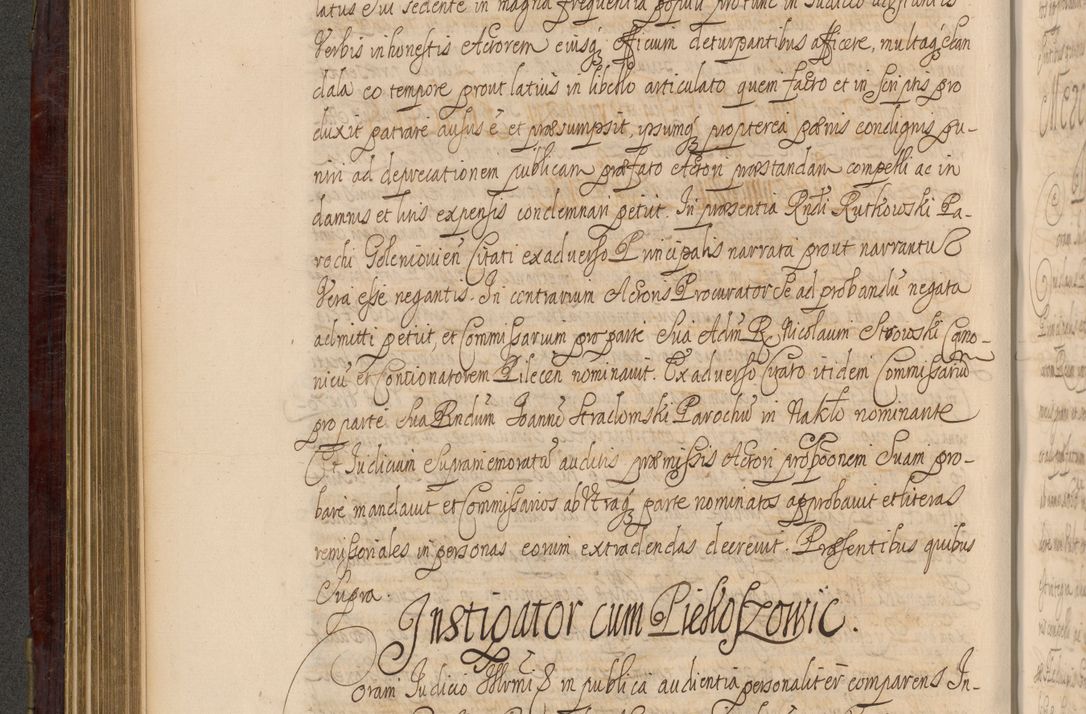 latus Sui sedente in magna frequentia populi protunc in Judicio
Verbis inhonestis Actorem eiusq́ officium deturpantibus afficere, multaq́ scan
dala eo tempore prout latius in libello articulato quem facto et in Scriptis pro
duxit patrare ausus ē et præsumpsit, ipsumq́ propterea pænis condignis pu-
niri ad deprecationem publicam præfato Actori præstandam compelli ac in
damnis et litis expensis condemnari petiit. In præsentia Rndi Rutkowski Pa-
rochi Goleniovien̄ Citati ex adverso Principalis narrata prout narrantur
Vera esse negantis. In contrarium Actoris Procurator Se ad probandū negata
admitti petiit, et Commissarium pro parte Sua Adm̄ R. Nicolaum Strowski Cano-
nicū et Contionatorem Pilecen̄ nominavit. Ex adverso Citato itidem Commissariū
pro parte Sua Rndum Joannē Straclomski Parochū in Nakło nominante
Et Judicium Supramemoratū auditis præmissis Actori pro͞p͞onem Suam pro-
bare mandavit et Commissarios ab Utraq́ parte nominatos approbavit et literas
remissoriales in personas eorum extradendas decrevit. Præsentibus quibus
Supra.
Instigator cum Piekoszowic.
Coram Judicio Illrmi S in publica audientia personalitēr comparens In-